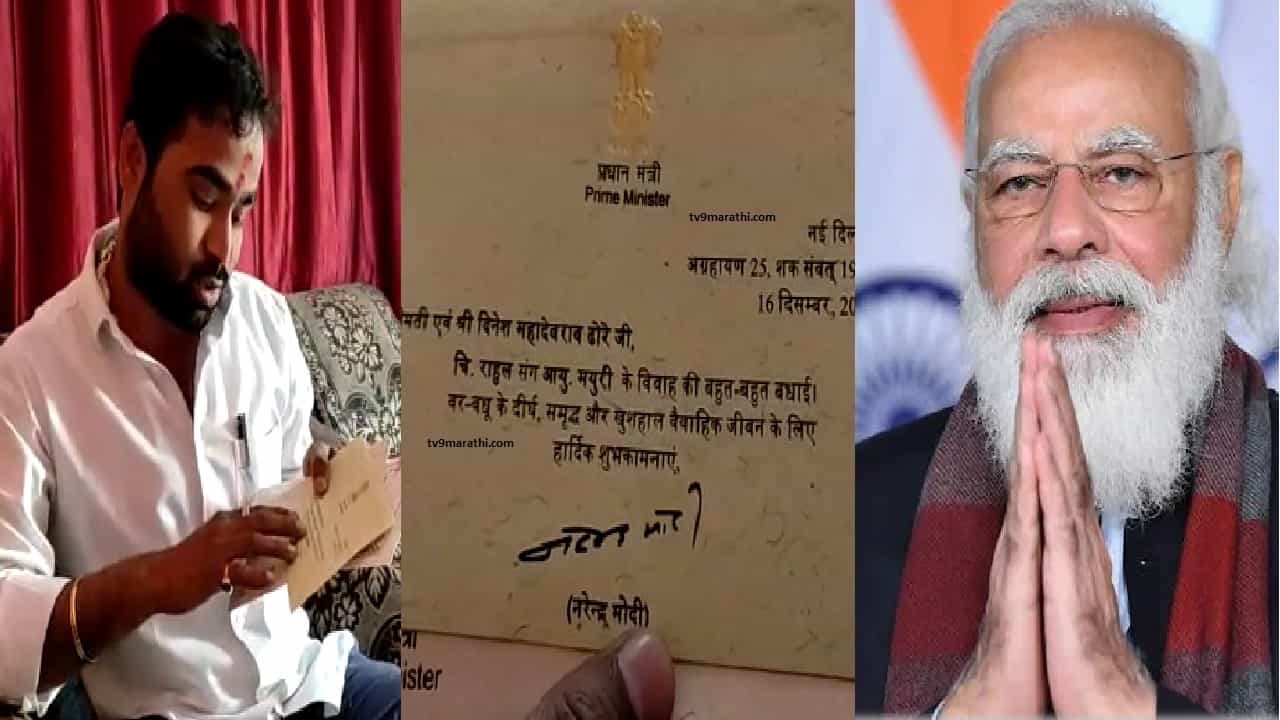 प्रधान मंत्री
Prime Minister
tv9marathi.com
नई दिल
अग्रहायण 25, शक संवत् 19
16 दिसम्बर, 20
मती एवं श्री दिनेश महादेवराव ढोरे जी,
चि. राहुल संग आयु. मयुरी के विवाह की बहुत-बहुत बधाई।
वर-वधू के दीर्घ, समृद्ध और खुशहाल वैवाहिक जीवन के लिए
tv9marathi.com
हार्दिक शुभकामनाएं,
(नरेन्द्र मोदी)
ister